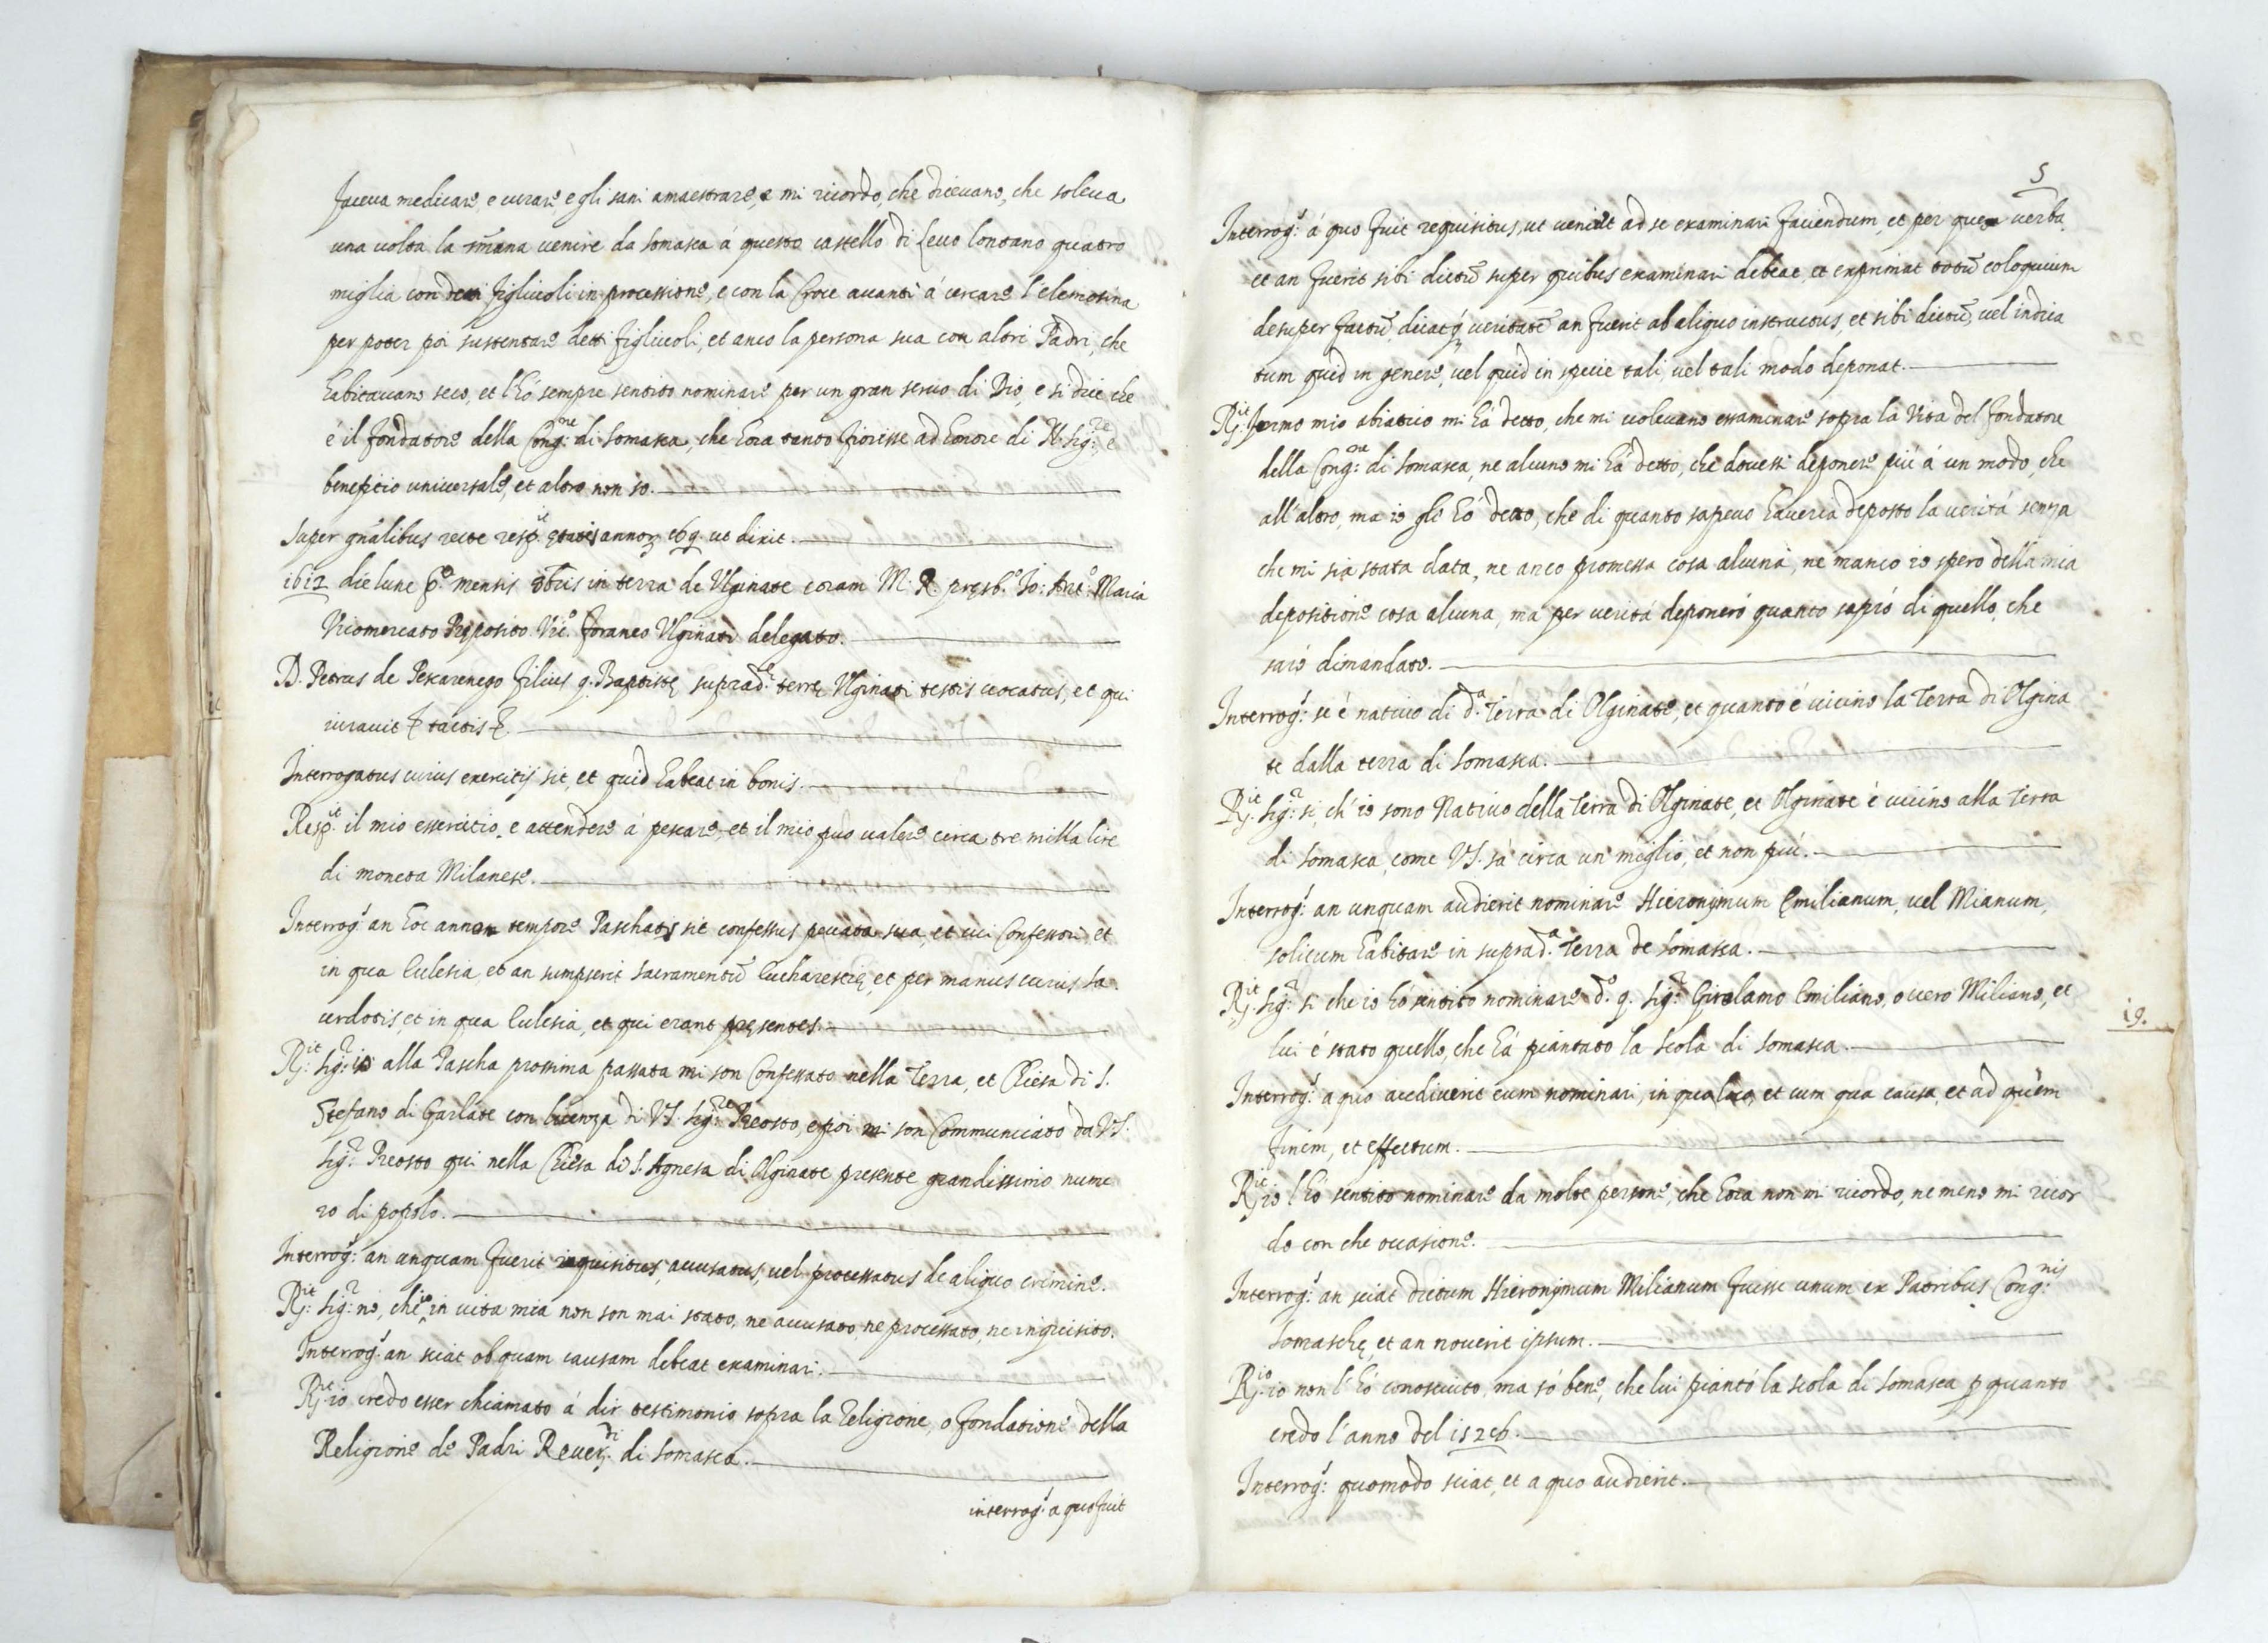 faceua medicare, e curare, e gli sani amaestrare, e mi ricordo, che diceuano, che soleua
una uolta la smana uenire da Somasca á questo castello di Leuo lontano quatro
miglia con detti figliuoli in processione, e con la Croce auanti á cercare l'elemosina
per poter poi sustentare detti figliuoli, et anco la persona sua con altri Padri, che
habitauano seco, et l'hó sempre sentito nominare per un gran seruo di Dio, e si dice che
é il fondatore della Cong:ne di Somasca, che hora tanto fiorisse ad honore di N. Sig:re e
benefitio uniuersale, et altro non so.
Super gnalibus recte resp.it etatis annor 69. ut dixit.
1612 die lune p.o mensis 8bris in terra de Ulginate coram M: R. presb.o Jo: Ant.o Maria
Vicomercato Preposito Vic.o foraneo Ulginati delegato.
D. Petrus de Pescarenego filius q. Baptiste suprad.e terre Ulginati testis uocatus, et qui
iurauit & tactis &.
Interrogatus cuius exercitij sit, et quid habeat in bonis.
Resp.it il mio essercitio e attendere á pescare, et il mio puo ualere circa tre milla lire
di moneta Milanese.
Interrog.s an hoc anno tempore Paschatis sit confessus peccata sua, et cui Confessori et
in qua Eclesia, et an sumpserit sacramentũ Eucharestie, et per manus cuius sa
cerdotis, et in qua Eclesia, et qui erant presentes.
R:it Sig:r io alla Pascha prossima passata mi son Confessato nella Terra, et Chiesa di S.
Stefano di Garlate con licenza di V.S. Sig:re Preosto, e poi mi son Communicato da V.S.
Sig:r Preosto qui nella Chiesa di S. Agnesa di Olginate presente grandissimo nume
ro di popolo.
Interrog:s an unquam fuerit inquisitus, accusatus, uel processatus de aliquo crimine.
R:it Sig:r no, che io in uita mia non son mai stato, ne accusato, ne processato, ne inquisito.
Interrog.s an sciat ob quam causam debeat examinari.
R:it io credo esser chiamato á dir testimonio sopra la religione, o fondatione della
Religione de Padri Reuer.di di Somasca.
interrog.s a quo fuit
5
Interrog:s á quo fuit requisitus, ut ueniret ad se examinari faciendum, et per que uerba
et an fuerit sibi dictũ super quibus examinari debeat, et exprimat totũ coloquium
desuper factũ, dicatq ueritatẽ an fuerit ab aliquo instructus, et sibi dictũ, uel indica
tum quid in genere, uel quid in specie tali, uel tali modo deponat.
R:it Jermo mio abiatico mi há detto, che mi uoleuano essaminare sopra la Vita del fondatore
della Cong:ne di Somasca, ne alcuno mi há detto, che douessi deponere piú á un modo, che
all'altro, ma io gli hó detto, che di quanto sapeuo haueria deposto la ueritá senza
che mi sia stata data, ne anco promessa cosa alcuna, ne manco io spero della mia
depositione cosa alcuna, ma per ueritá deponeró quanto sapró di quello, che
saró dimandato.
Interrog:s se é natiuo di d.a Terra di Olginate, et quanto é uicino la Terra di Olgina
te dalla terra di Somasca.
R:it Sig:r si, ch'io sono Natiuo della Terra di Olginate, et Olginate é uicino alla Terra
di Somasca, come V.S. sá circa un miglio, et non piú.
Interrog:s an unquam audierit nominare Hieronymum Emilianum, uel Mianum,
solicum habitare in suprad.a Terra de Somasca.
R:it Sig:r si che io hó sentito nominare d.o q. Sig:r Girolamo Emiliano, ouero Miliano, et
lui é stato quello, che há piantato la scola di Somasca.
19.
Interrog:s a quo audiuerit eum nominari, in quo loco, et cum qua causa, et ad quem
finem, et effectum.
R:it io l'hó sentito nominare da molte persone, che hora non mi ricordo, ne meno mi ricor
do con che occasione.
Interrog:s an sciat dictum Hieronymum Milianum fuisse unum ex Patribus Cong:nis
Somasche, et an nouerit ipsum.
R:it io non l'hó conosciuto, ma só bene, che lui piantó la scola di Somasca p quanto
credo l'anno del 1526.
Interrog:s quomodo sciat, et a quo audierit.